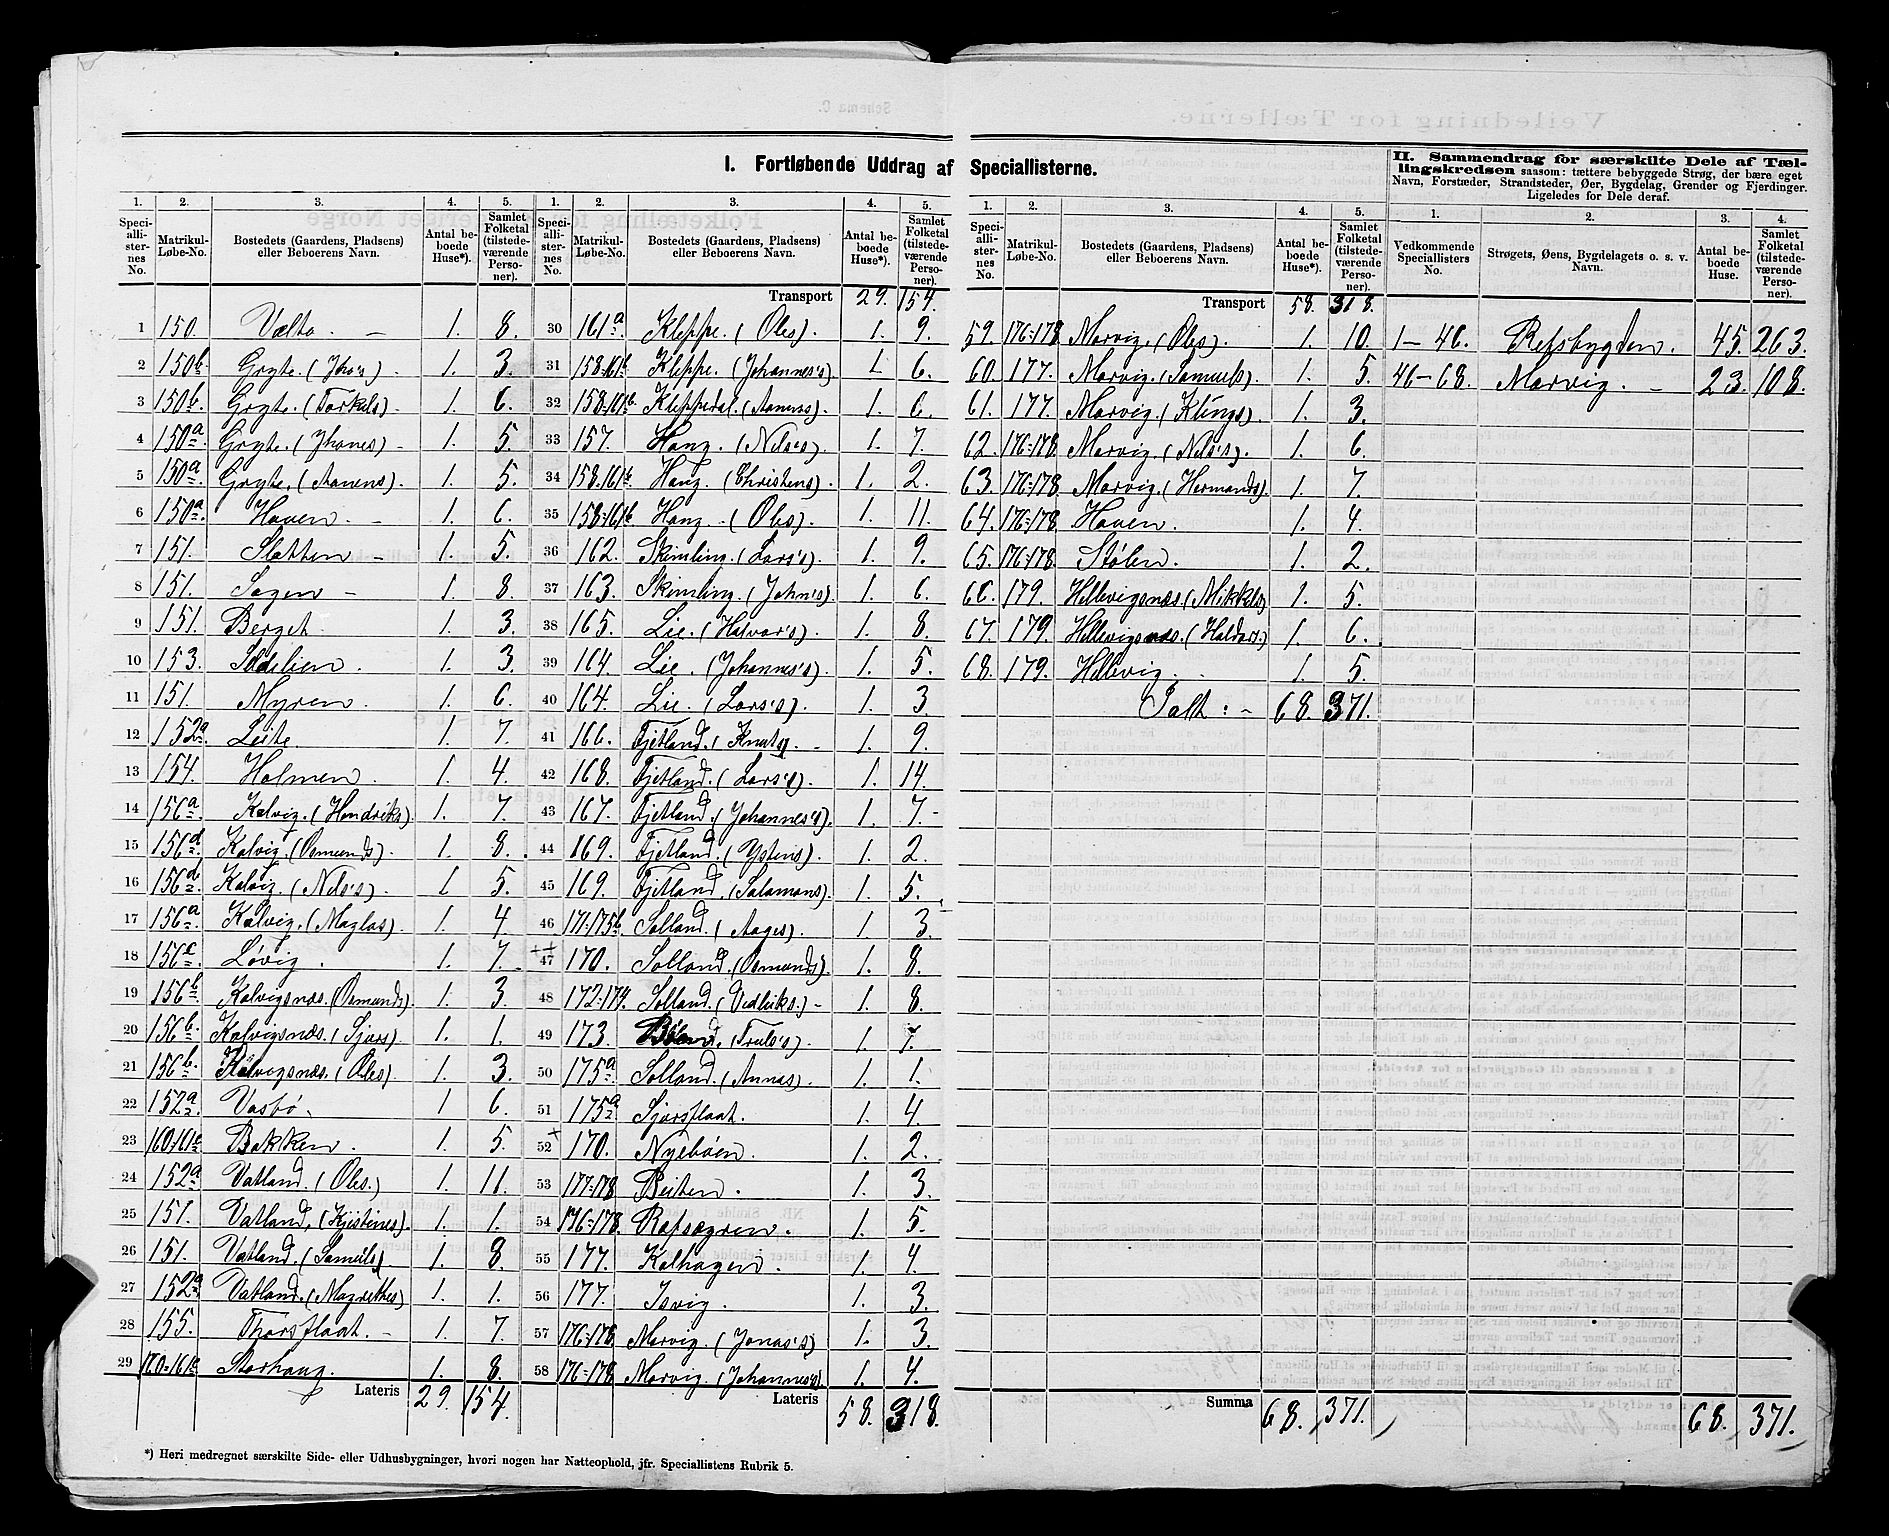 I. Fortløbende Uddrag af Speciallisterne.
II. Sammendrag for særskilte Dele af Tæl-
lingskredsen saasom: tættere bebyggede Strøg, der bære eget
Navn, Forstæder, Strandsteder, Øer, Bygdelag, Grender og Fjerdinger.
Ligeledes for Dele deraf.
1. 2. 3. 4. 5.
Speciallisternes No. Matrikul-Løbe-No. Bostedets (Gaardens, Pladsen) eller Beboerens Navn. Antal beboede Huse*). Samlet Folketal (tilstedeværende Personer).
1 150. Vælto. – 1. 8.
2 150b Gryte. (Jho's) 1. 3.
3 150b. Gryte. (Torkels). 1. 6.
4 150a Gryte. (Jhones) – 1. 5.
5 150a Gryte. (Aanens). 1. 5.
6 150a. Haven. – 1. 6.
7 151. Sletten – 1. 5.
8 151. Hagen – 1. 8.
9 151. Berget. 1. 3.
10 153. 1. 3.
11 151. Myren. 1. 6.
12 152a. Leite. 1. 7.
13 154. Holmen. 1. 4.
14 156a Kalvig. (Hendriks) 1. 7.
15 156d. Kalvig. (Osmunds). 1. 8.
16 156d. Kalvig. (Nels's). 1 5.
17 156a Kalvig. (Maglas). 1. 4.
18 156c Løvig. 1. 7.
19 156b. Kalvigsnæs. (Osmunds). 1. 3.
20 156b. Kalvigsnæs. (Sjurs) 1. 1.
21 156b. Kalvigsnæs. (Oles). 1. 3.
22 152a. Vasbø. 1 6.
23 160.161c Bakken. 1. 5.
24 152a Vatland. (Oles.) 1. 11.
25 151. Vatland. (Kjistines). 1. 1.
26 151. Vatland. (Samuels) 1. 8.
27 152a Vatland. (Magrethes) 1. 1.
28 155. Thorsflaat. – 1. 7.
29 160-161c Storhaug. 1. 8.
Lateris 29. 154.
1. 2. 3. 4. 5.
Speciallisternes No. Matrikul-Løbe-No. Bostedets (Gaardens, Pladsen) eller Beboerens Navn. Antal beboede Huse*). Samlet Folketal (tilstedeværende Personer).
Transport 29. 154.
30 161a Kleppe. (Oles). 1. 9.
31 158.161b Kleppe. (Johannes's) 1. 6.
32 158.161b Kleppedal. (Aanens) 1. 6.
33 157. Haug. (Nels's) 1. 7.
34 158.161b Haug. (Christens) 1. 2.
35 158.161b Haug. – (Oles). 1. 11.
36 162. Skimling. (Lars's). 1. 9.
37 163. Skimling. (John's). 1. 6.
38 165. Lie. (Halvor's). 1. 8.
39 164. Lie. (Johannes's) 1. 5.
40 164. Lie. (Lars's). 1. 3
41 166. Fjetland. (Knuts). – 1. 9.
42 168. Fjetland. (Lars's). 1. 14.
43 167. Fjetland. (Johannes's). 1. 7.
44 169. Fjetland. (Ystens). 1. 2.
45 169. Fjetland. (Salamons). 1. 5.
46 171-175b Solland. (Aages). 1. 3.
47 170. Solland. (Osmunds). 1. 8.
48 172-174. Solland. (Vedleiks.) – 1. 8
49 173. (Truls's). 1. 7.
50 175a Solland. (Annas). 1. 1.
51 175a Sjursflaat. 1. 4.
52 170. Nyebøen. 1. 2.
53 177-178 Beiten. 1. 3.
54 176-178. Refsøgren. 1. 5.
55 177. Kalhagen. 1. 4.
56 177. Isvig. 1. 3.
57 176-178 Marvig. (Jonas's) 1. 3.
58 176-178 Marvig. (Johannes's). 1. 4.
Lateris 58. 318.
1. 2. 3. 4. 5.
Speciallisternes No. Matrikul-Løbe-No. Bostedets (Gaardens, Pladsen) eller Beboerens Navn. Antal beboede Huse*). Samlet Folketal (tilstedeværende Personer).
Transport 58. 318.
59. 176-178 Marvig. (Oles). 1. 10.
60. 177. Marvig. (Samuels). 1. 5.
61. 177. Marvig. (Klungs) 1. 3.
62. 176-178 Marvig. (Nels's). 1. 6.
63. 176-178 Marvig. (Hermands). 1. 7.
64. 176-178 Haven. 1. 4.
65. 176-178. Stølen. 1. 2.
66. 179. Hellevigsnæs. (Mikkels) 1. 5.
67. 179. Hellevigsnæs. (Haldors.) 1. 6.
68. 179. Hellevig. 1. 5.
Ialt: – 68. 371.
Summa 68. 371.
1. 2. 3. 4.
Vedkommende Speciallisters No. Strøgets, Øens, Bygdelagets o. s. v. Navn. Antal beboede Huse. Samlet Folketal (tilstedeværende Personer).
1–46. Refsbygden. 45. 263.
46–68. Marvig. – 23. 108.
68. 371.
*) Heri medregnet særskilte Side- eller Udhusbygninger, hvori nogen har Natteophold, jfr. Speciallistens Rubrik 5.